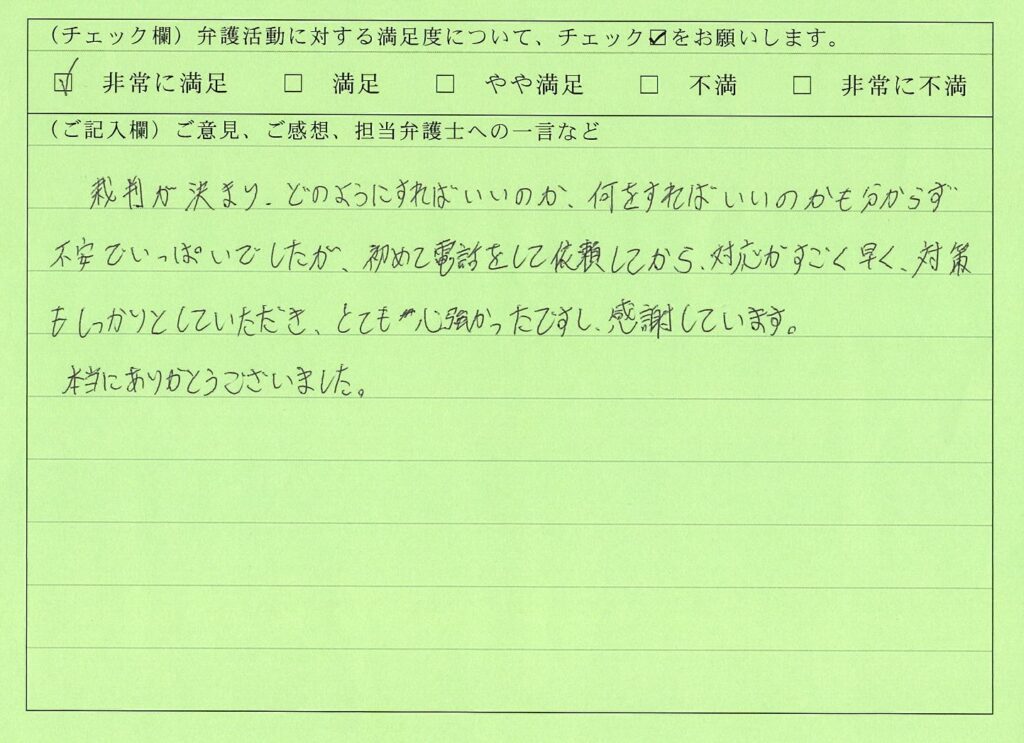 （チェック欄）弁護活動に対する満足度について、チェック☑をお願いします。
☑ 非常に満足 □ 満足 □ やや満足 □ 不満 □ 非常に不満
（ご記入欄）ご意見、ご感想、担当弁護士への一言など
裁判が決まり、どのようにすればいいのか、何をすればいいのかも分からず
不安でいっぱいでしたが、初めて電話をして依頼してから、対応がすごく早く、対策
もしっかりとしていただき、とても心強かったですし、感謝しています。
本当にありがとうございました。